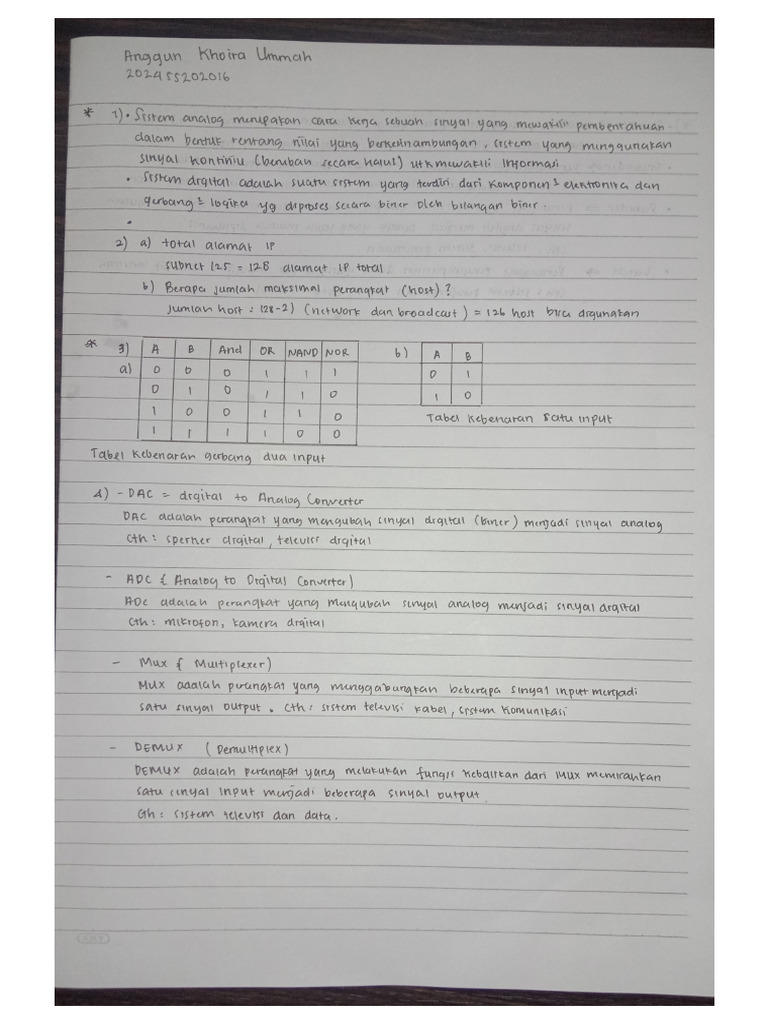 Anggun Khoira Ummah
202455202016
* 1) • Sistem analog merupakan cara kerja sebuah sinyal yang mewakili pemberitahuan
dalam bentuk rentang nilai yang berkesinambungan, sistem yang menggunakan
sinyal kontiniu (berubah secara halus) utk mewakili informasi
• Sistem digital adalah suatu sistem yang terdiri dari komponen² elektronika dan
gerbang² logika yg diproses secara biner oleh bilangan biner.
•
2) a) total alamat IP
subnet /25 = 128 alamat IP total
b) Berapa jumlah maksimal perangkat (host)?
Jumlah host : 128-2) (network dan broadcast) = 126 host bisa digunakan
* 3) A B And OR NAND NOR b) A B
a) 0 0 0 1 1 1 0 1
0 1 0 1 1 0 1 0
1 0 0 1 1 0 Tabel kebenaran satu input
1 1 1 1 0 0
Tabel kebenaran gerbang dua input
4) - DAC = digital to Analog Converter
DAC adalah perangkat yang mengubah sinyal digital (biner) menjadi sinyal analog
Cth : speaker digital, televisi digital
- ADC ( Analog to Digital Converter)
ADC adalah perangkat yang mengubah sinyal analog menjadi sinyal digital
Cth : mikrofon, kamera digital
- Mux ( Multiplexer)
Mux adalah perangkat yang menggabungkan beberapa sinyal input menjadi
satu sinyal output. Cth : sistem televisi kabel, sistem komunikasi
- DEMUX (Demultiplex)
DEMUX adalah perangkat yang melakukan fungsi kebalikan dari Mux memisahkan
satu sinyal input menjadi beberapa sinyal output
Cth : sistem televisi dan data.